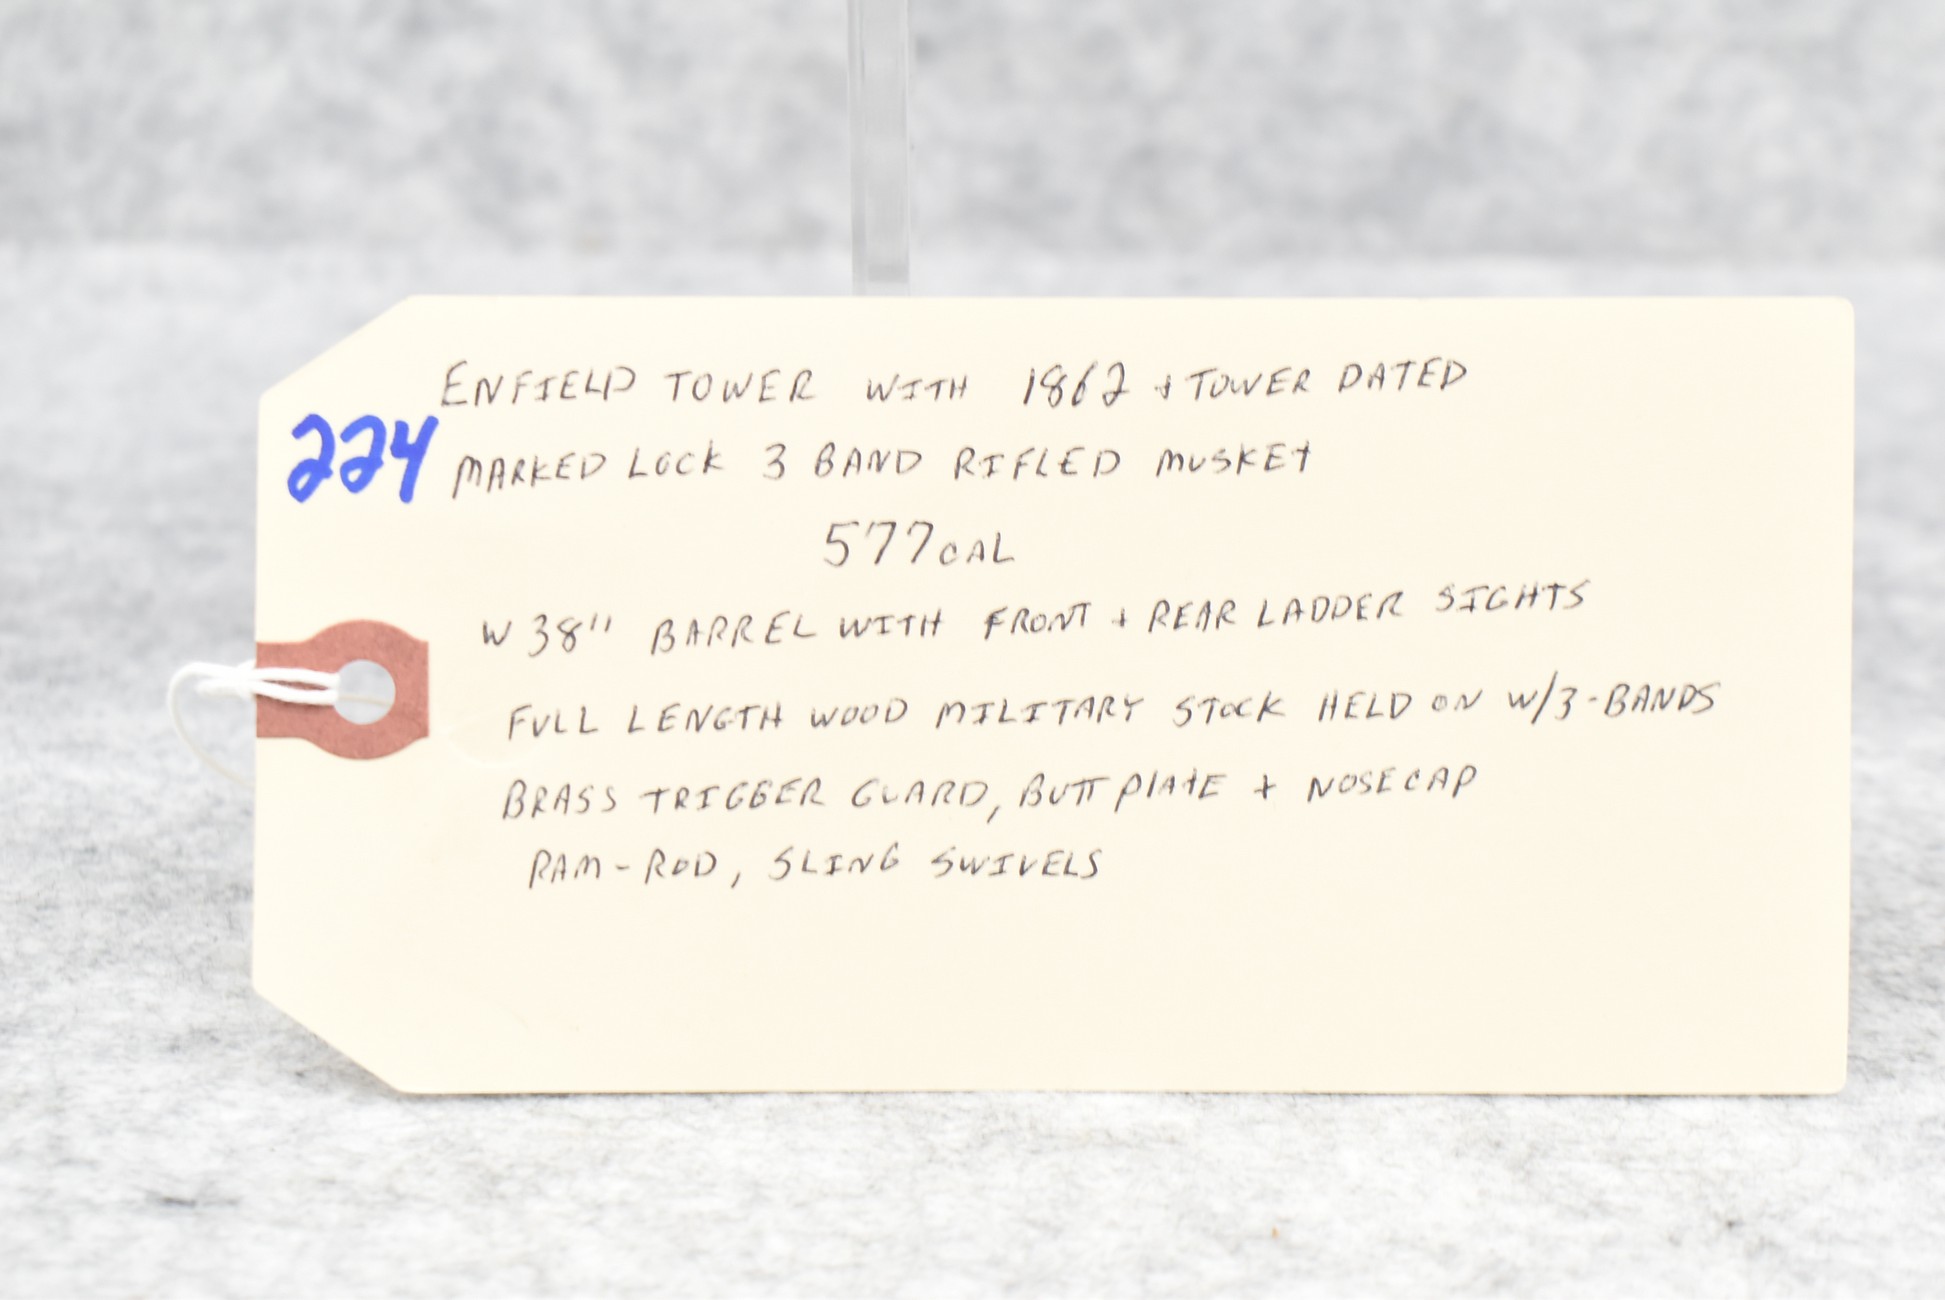 ENFIELD TOWER WITH 1862 + TOWER DATED
224 MARKED LOCK 3 BAND RIFLED MUSKET
577 CAL
W 38" BARREL WITH FRONT + REAR LADDER SIGHTS
FULL LENGTH WOOD MILITARY STOCK HELD ON W/3-BANDS
BRASS TRIGGER GUARD, BUTT PLATE + NOSECAP
RAM-ROD, SLING SWIVELS